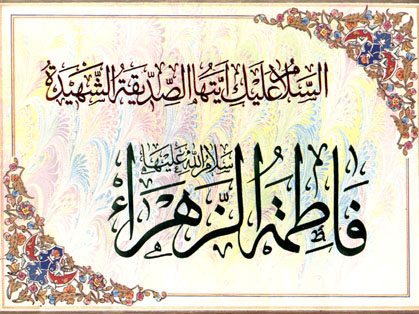 السَّلامُ عَلَيْكِ أَيَّتُهَا الصِّدِّيقَةُ الشَّهِيدَةُ
سلام الله علیها
فَاطِمَةُ الزَّهْرَاءُ